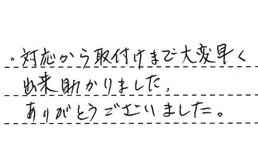 ・対応から取付けまで大変早く
出来助かりました。
ありがとうございました。